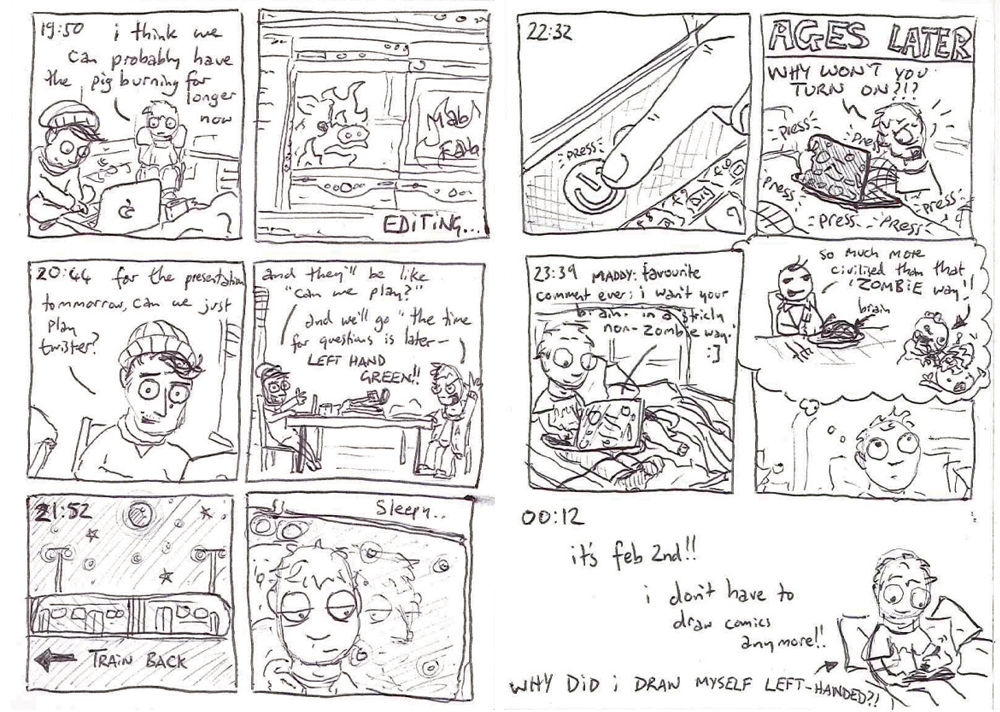 19:50
i think we
can probably have
the pig burning for
longer
now
EDITING...
20:44
for the presentation
tommorrow, can we just
play
twister?
and they'll be like
"can we play?"
and we'll go "the time
for questions is later-
LEFT HAND
GREEN!!
21:52
TRAIN BACK
Sleepy..
22:32
PRESS
AGES LATER
WHY WON'T YOU
TURN ON?!?
press
Press
press
Press
press
press
PRESS
23:39
MADDY: favourite
comment ever: i want your
brain. in a stricly
non-zombie way.'
:]
so much more
civilised than that
'ZOMBIE way'!
brain
00:12
it's feb 2nd!!
i don't have to
draw comics
anymore!!
WHY DID i DRAW MYSELF LEFT-HANDED?!